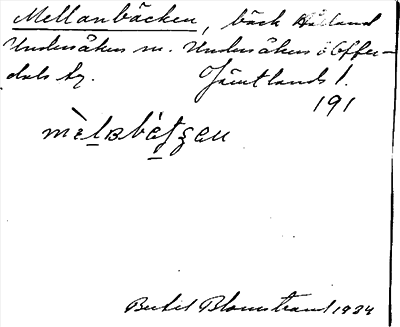 Mellanbäcken, bäck Hålland
Undersåkers sn. Undersåkers o Offer-
dals tg. Jämtlands l.
191
Bertil Blomstrand 1934